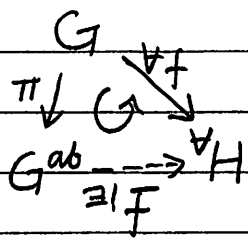 G
∀f
π ↺
G^ab ∀H
∃! f̄